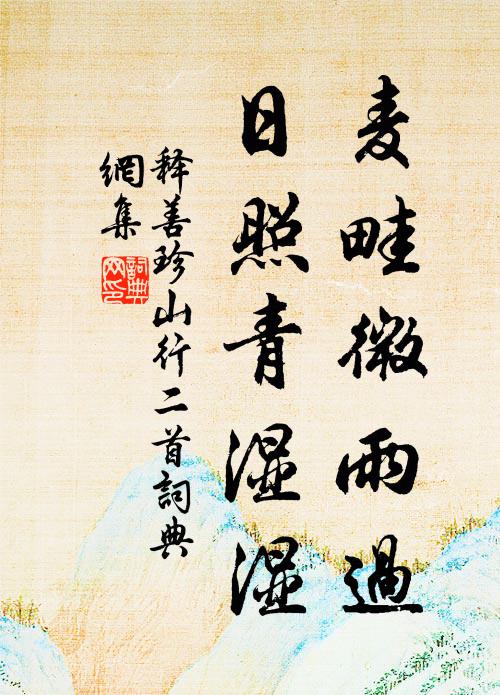 麦畦微雨過
日照青湿湿
释善珍山行二首詞典
網集
詞典網印